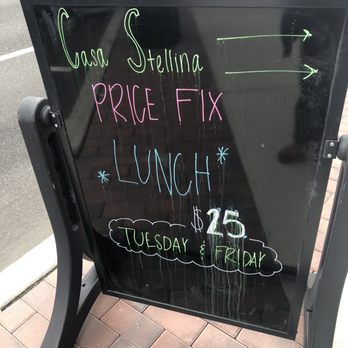 Casa Stellina
PRICE FIX
*LUNCH*
$25
TUESDAY & FRIDAY